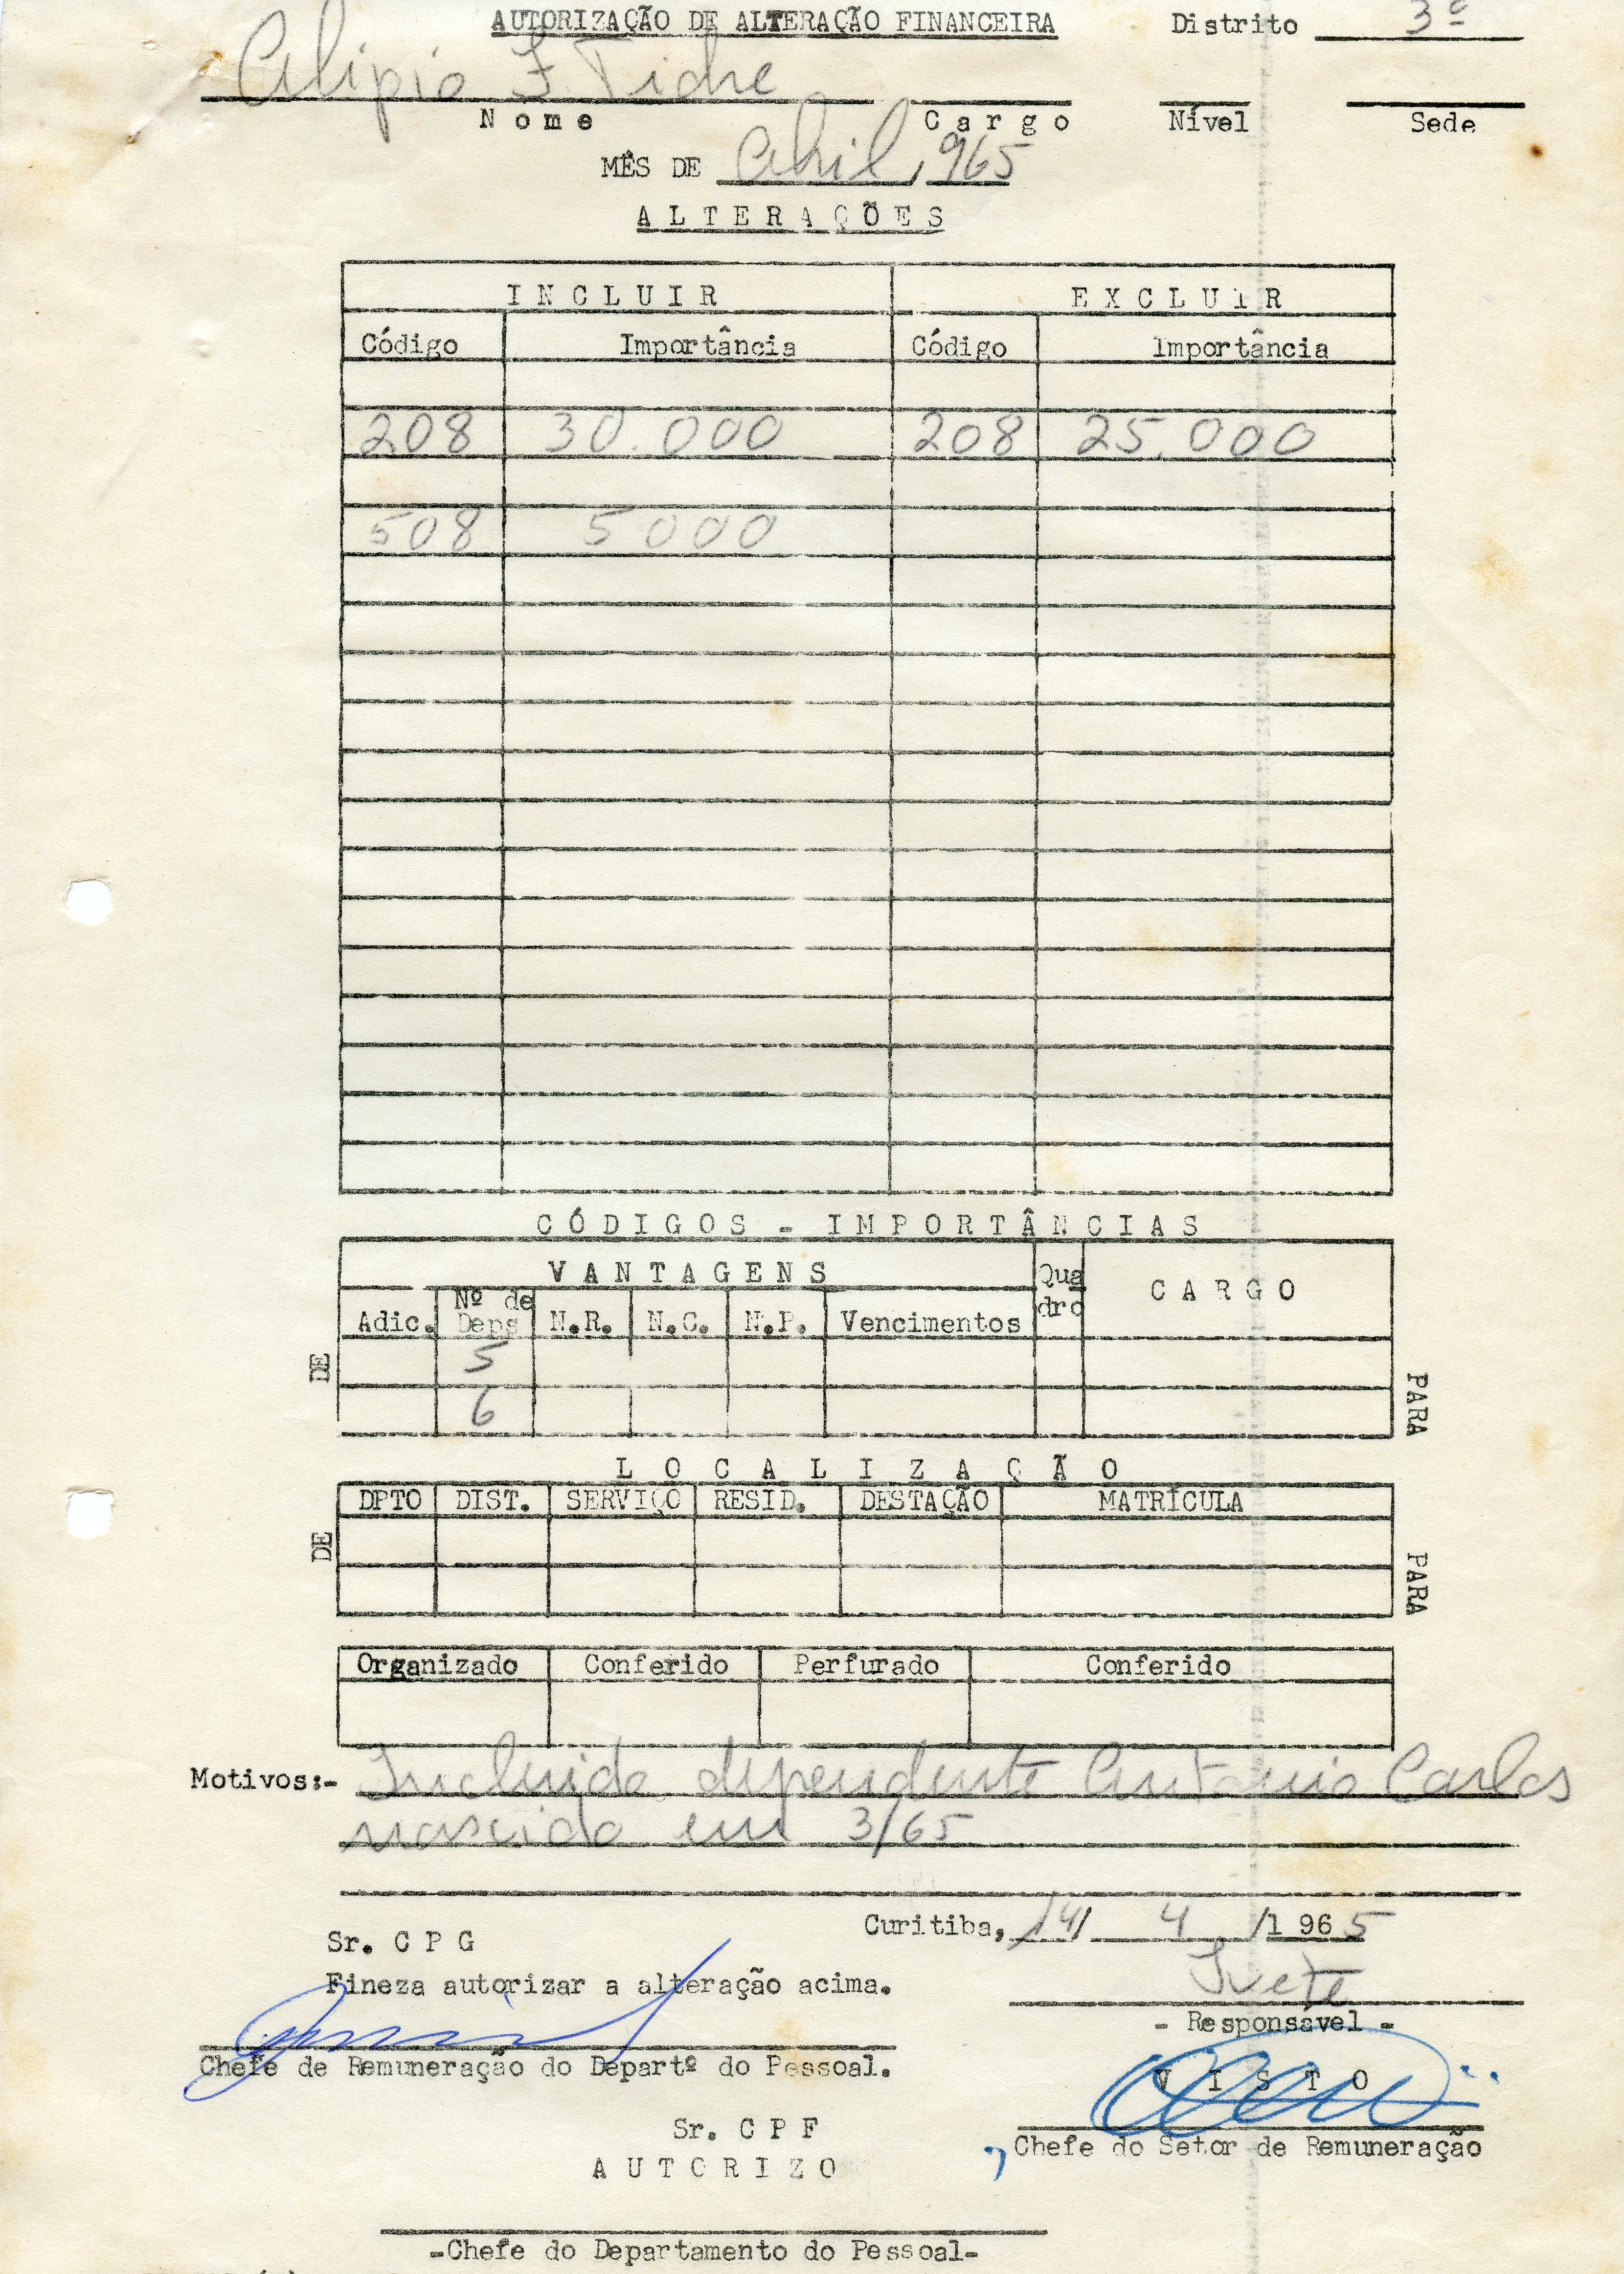 AUTORIZAÇÃO DE ALTERAÇÃO FINANCEIRA Distrito 3º
Alipio F. 
Nome Cargo Nível Sede
MÊS DE Abril, 965
ALTERAÇÕES
INCLUIR EXCLUIR
Código Importância Código Importância
208 30.000 208 25.000
508 5000
CÓDIGOS - IMPORTÂNCIAS
VANTAGENS Qua CARGO
Nº de dro
Adic. Deps N.R. N.C. N.P. Vencimentos
DE 5
6 PARA
LOCALIZAÇÃO
DPTO DIST. SERVIÇO RESID. DESTAÇÃO MATRÍCULA
DE
PARA
Organizado Conferido Perfurado Conferido
Motivos:- Incluida dependente Antonio Carlos
nascido em 3/65
Curitiba, 14/ 4 /1 96 5
Sr. C P G
Fineza autorizar a alteração acima. Ivete
- Responsável -
Chefe de Remuneração do Departº do Pessoal.
VISTO
Sr. C P F
Chefe do Setor de Remuneração
AUTORIZO
-Chefe do Departamento do Pessoal-